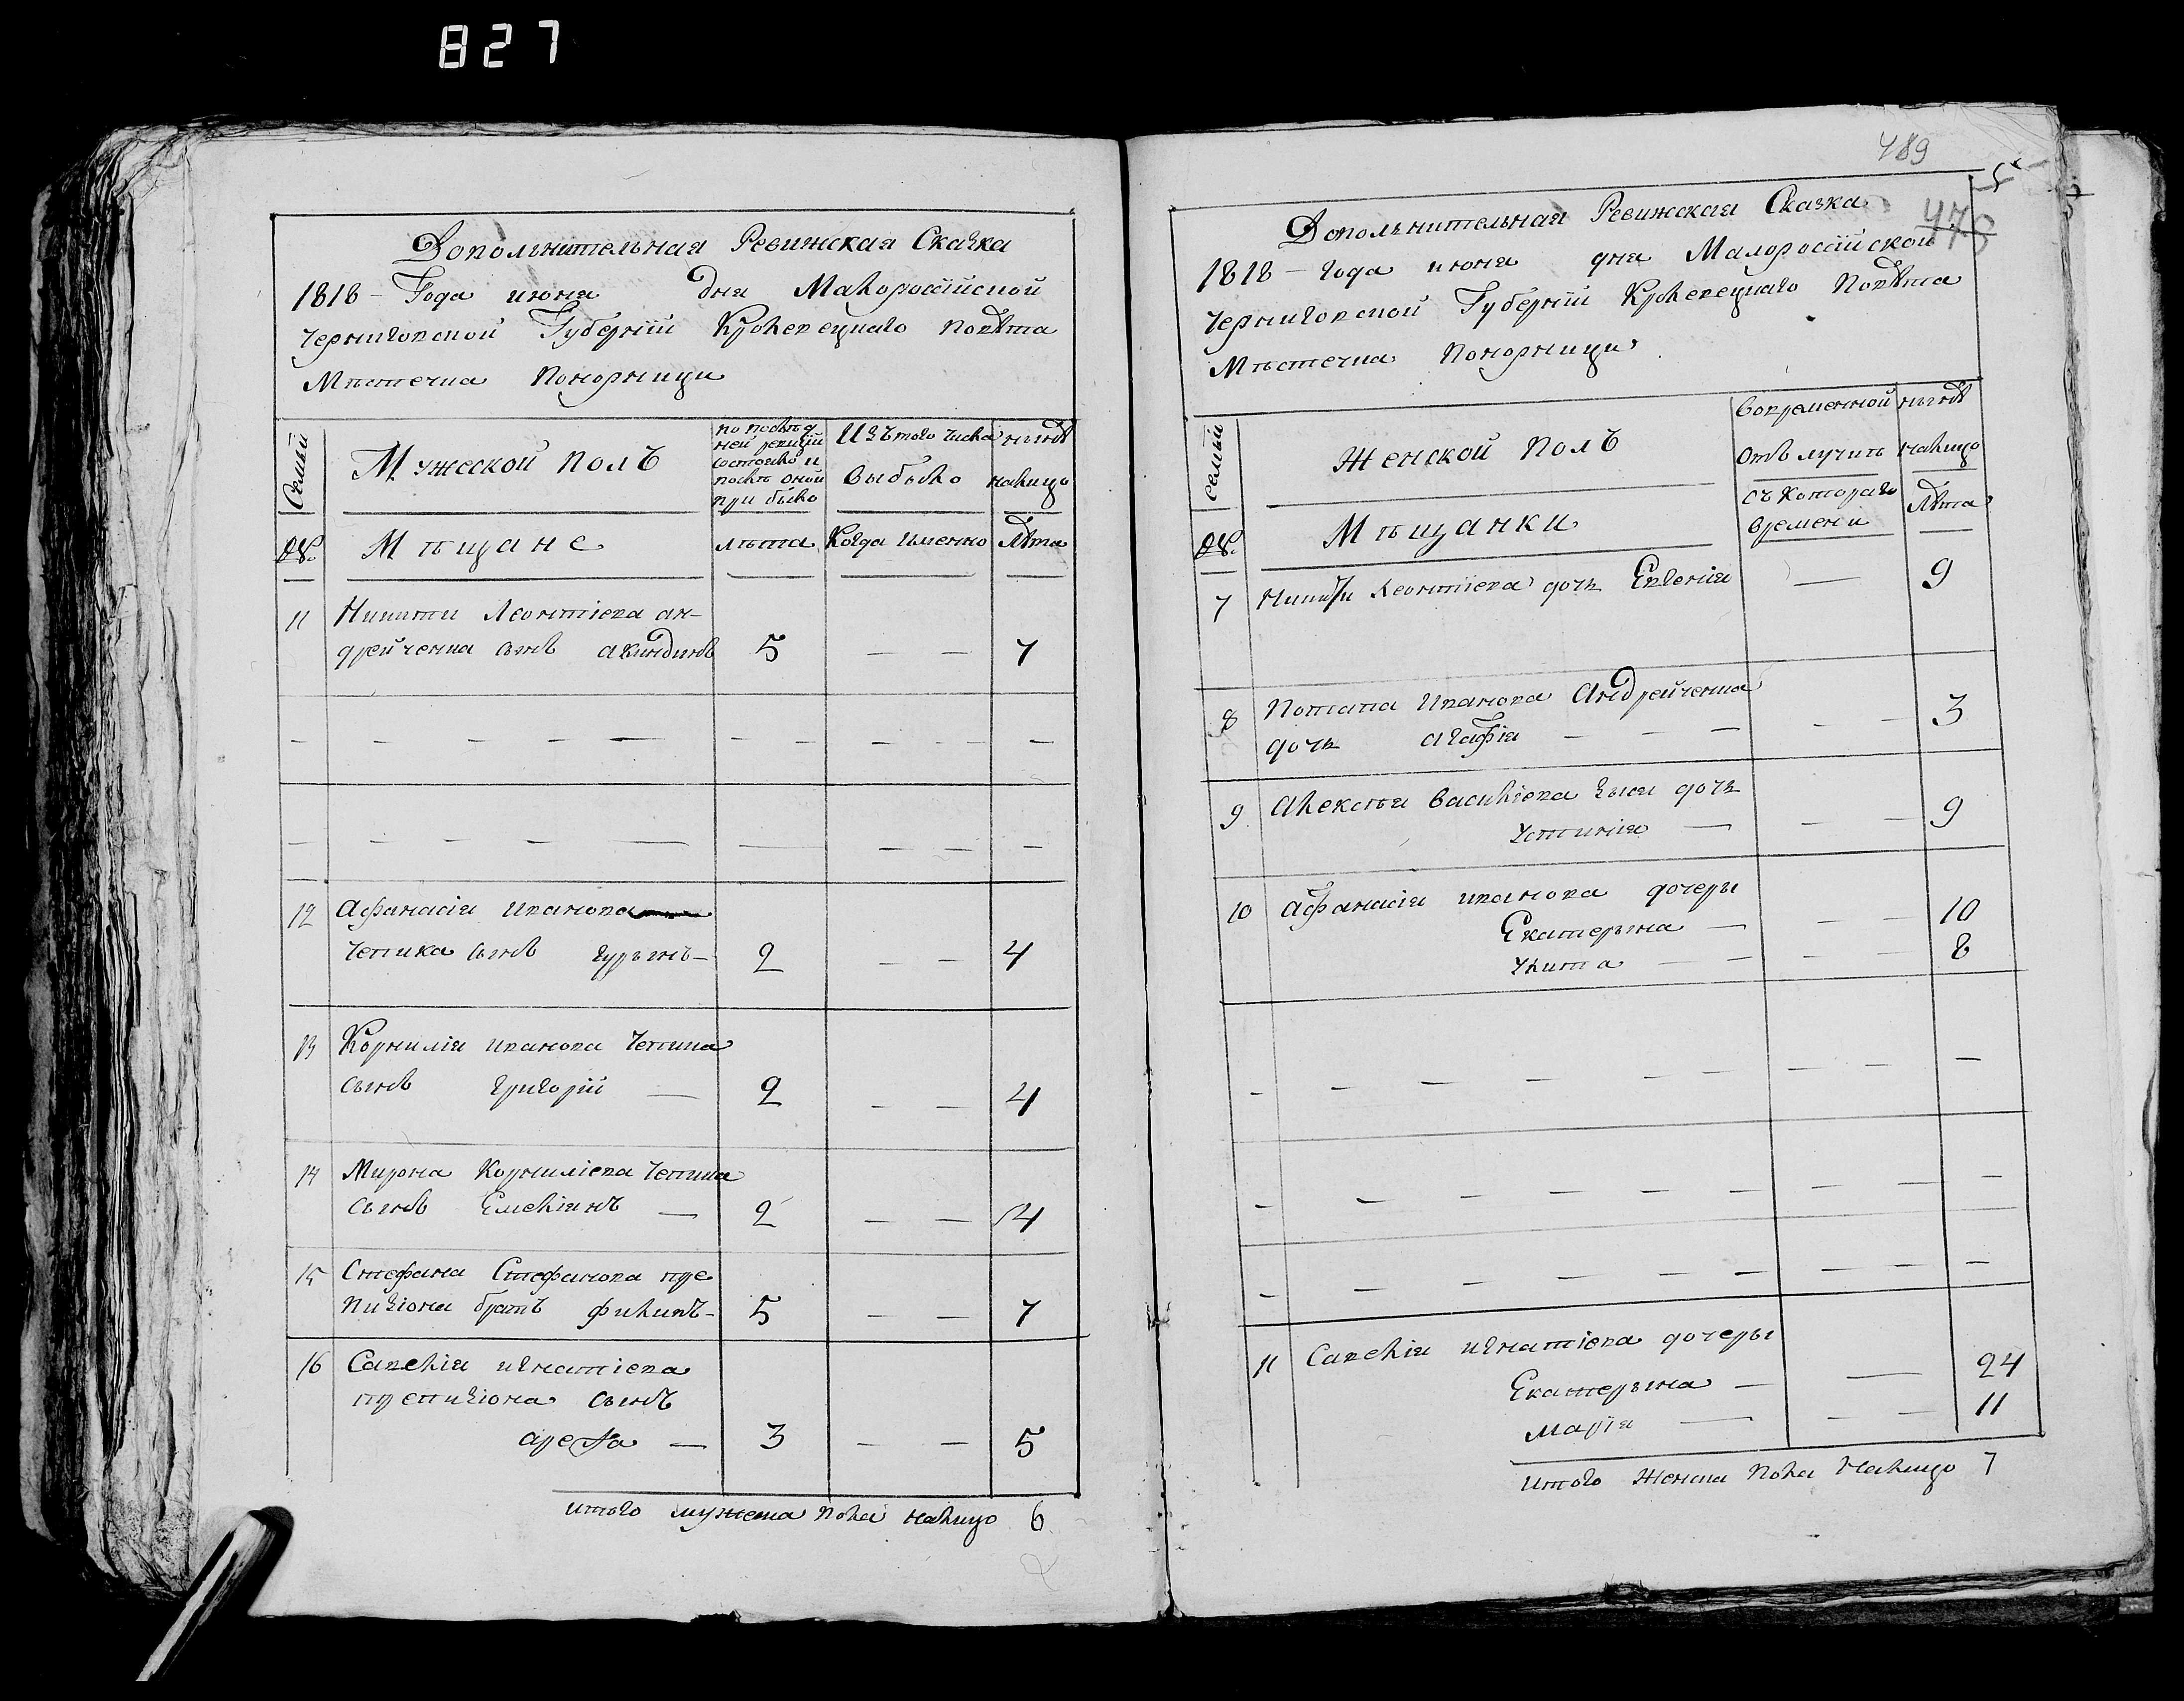 827
Дополнительная Ревижская Сказка
1818 – Года июня дня Малороссійской
Черниговской Губерніи Кролевецкаго повѣта
Мѣстечка Понорници
Семьи
Мужеской полъ
по послѣд
ней ревизіи
состояло и
послѣ оной
при было
Изъ того числа
выбыло
нынѣ
налицо
№.
Мѣщане
лѣта
Когда именно
Лѣта
11 Никити Леонтіева ан-
дрейченка сынъ акиндинъ 5 — — 7
12 Афанасія иванова
Чепика сынъ гурьянъ – 2 — — 4
13 Корнилія иванова Чепика
сынъ григорій — 2 — — 4
14 Мирона Корниліева Чепика
сынъ Емеліянъ — 2 — — 4
15 Стефана Стефанова пре
пизіона братъ филипъ – 5 — — 7
16 Савелія игнатіева
препизіона сынъ
арефа — 3 — — 5
итого мужеска пола налицо 6
489
5
478
Дополнительная Ревижская Сказка
1818 – года июня дня Малороссійской
Черниговской Губерніи Кролевецкаго Повѣта
Мѣстечка Понорници
семьи
Женской полъ
Вовременной
отълучитъ
нынѣ
налицо
№.
Мѣщанки
съ котораго
времени
Лѣта
7 Никити Леонтіева дочь Евгенія — 9
8 Потапа Иванова Андрейченка
дочь агафія — — — — — 3
9 Алексѣя Василіева зыси дочь
устинія — — — 9
10 афанасія иванова дочеры
Екатерына — — — 10
улита — — — — 8
11 Савелія игнатіева дочеры
Екатерына — — 24
марія — — — 11
итого женска пола налицо 7